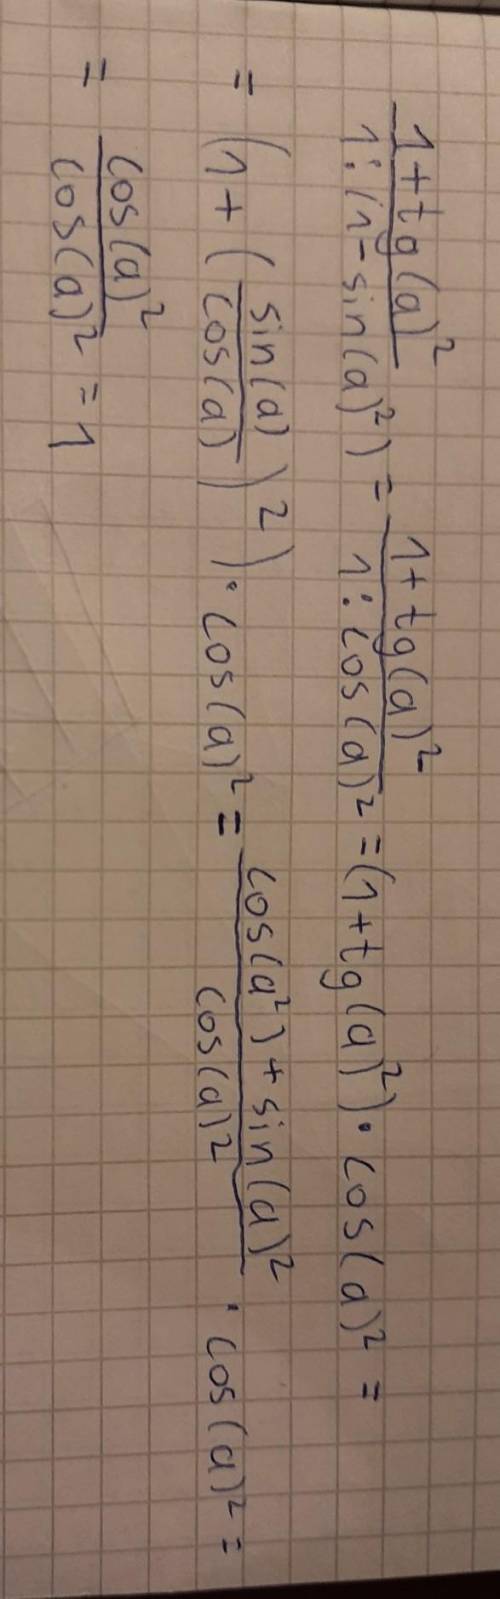 (1+tg(a)²)/(1:(1-sin(a)²)) = (1+tg(a)²)/(1:cos(a)²) = (1+tg(a)²)·cos(a)² =
= (1+(sin(a)/cos(a))²)·cos(a)² = (cos(a²)+sin(a)²)/cos(a)² · cos(a)² =
= cos(a)²/cos(a)² = 1